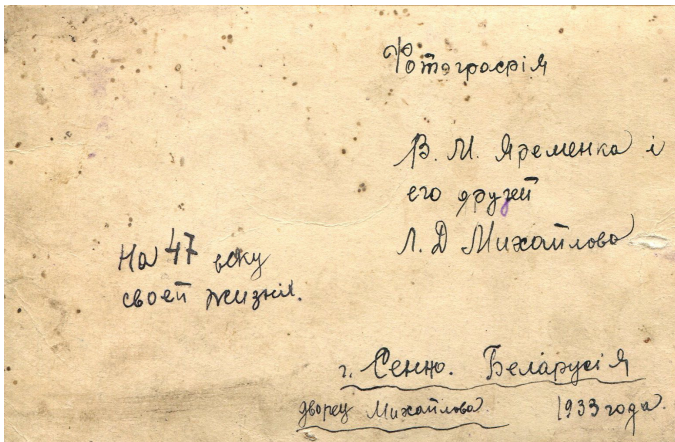 Фотографія
В. М. Яременка і
его друзей
Л. Д Михайлова
На 47 веку
своей жизни.
г. Сенно. Беларусія
дворец Михайлова. 1933 года.